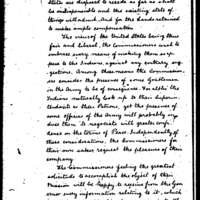 State are disposed to recede as far as shall
be indispensable and the existing state of
things will admit. And for the lands retained
to make ample compensation
This view of the United States being thus
fair and liberal, the Commissioners will
embrace every means of making them ap-
pear to the Indians, against any contrary sug-
gestions. Among these means the Commission-
ers consider the presence of some gentlemen
in the Army to be of consequence. As altho' the
Indians naturally look up to their Superin-
tendants as their Patrons, yet the presence of
some officers of the Army will probably in-
duce them to negotiate with greater confi-
dence on the terms of Peace. Independently of
these considerations, the Commissioners for
their own sakes request the pleasure of their
company.
The Commissioners feeling the greatest
solicitude to accomplish the object of their
Mission will be happy to receive from the Gov-
ernor every information relating to it, which